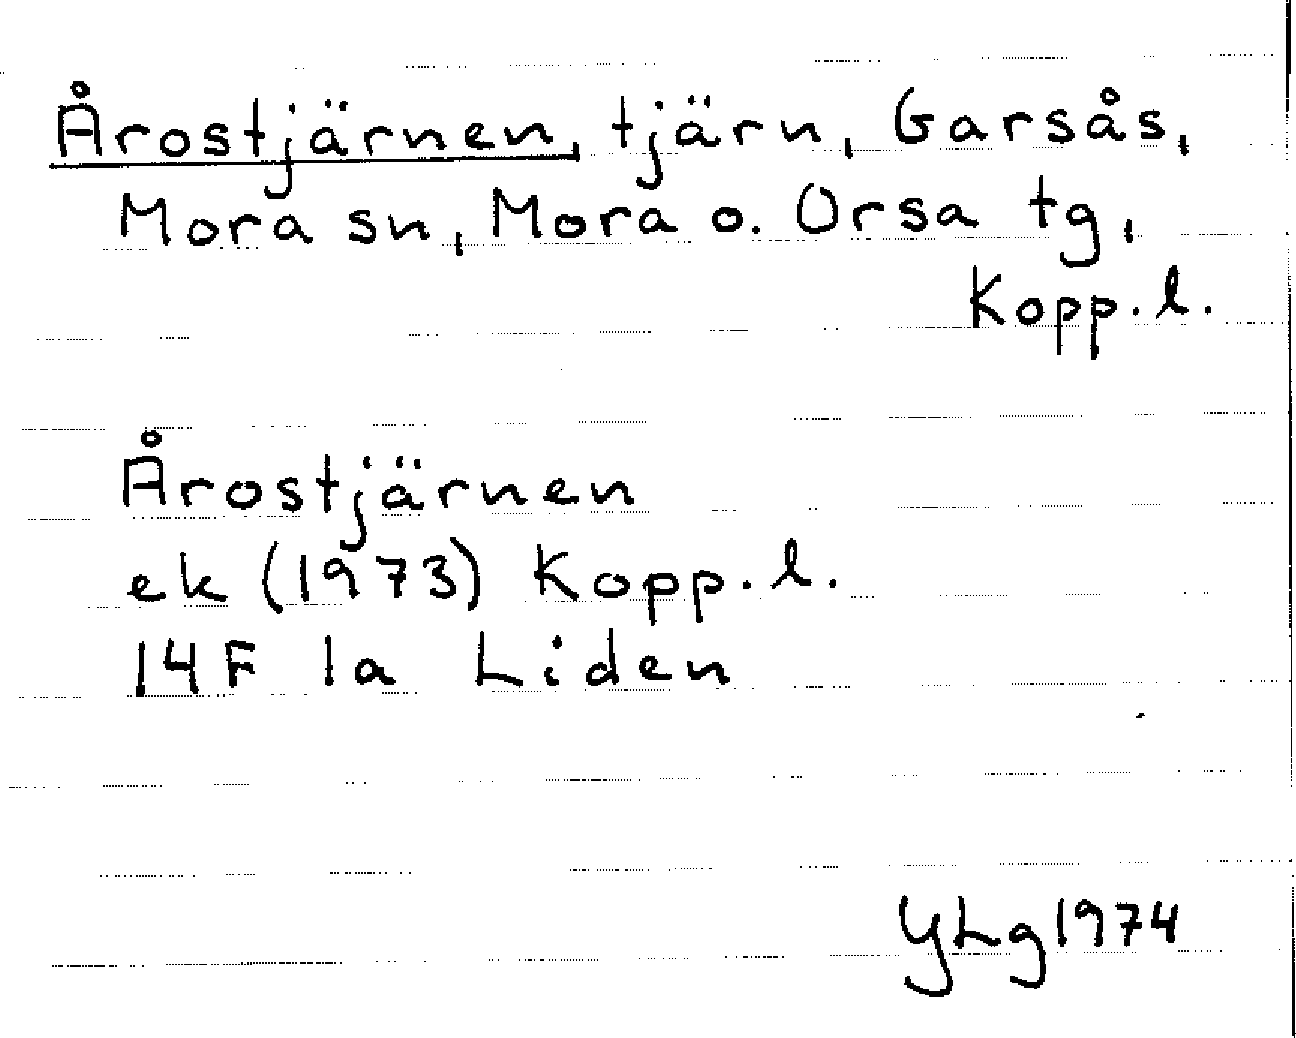 Årostjärnen, tjärn, Garsås,
Mora sn, Mora o. Orsa tg,
Kopp. l.
Årostjärnen
ek (1973) Kopp. l.
14F 1a Liden
YLg 1974